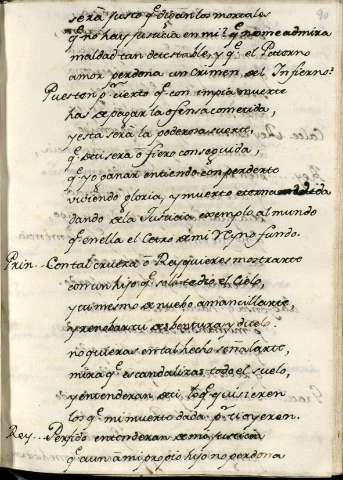 90
será justo q̃ digan los mortales
q̃ no hay justicia en mi? q̃ no me admira
maldad tan detestable, y q̃ el Paterno
amor perdona un crimen del Infierno?
Pues ten p.r cierto q̃ con impia muerte
has de pagar la ofensa cometida,
y esta será la poderosa suerte,
q̃ de ti será o fiero conseguida,
q̃ yo ganar entiendo con perderte
viviendo gloria, y muerto eterna vida
dando de la Justicia exemplo al mundo
q̃ en ella el Cetro de mi Reyno fundo.
Prin... Con tal crueza ô Rey quieres mostrarte
con un hijo q̃ solo te dio el Cielo,
y tu mesmo de nuebo amancillarte
y renobar tu desbentura y duelo.
no quieras en tal hecho señalarte,
mira q̃ escandalizas todo el suelo,
y entenderan de ti lo q̃ quisieren
los q̃ mi muerte dada p.r ti oyeren.
Rey... Perfido entenderan de mi justicia
q̃ aun a mi propio hijo no perdona